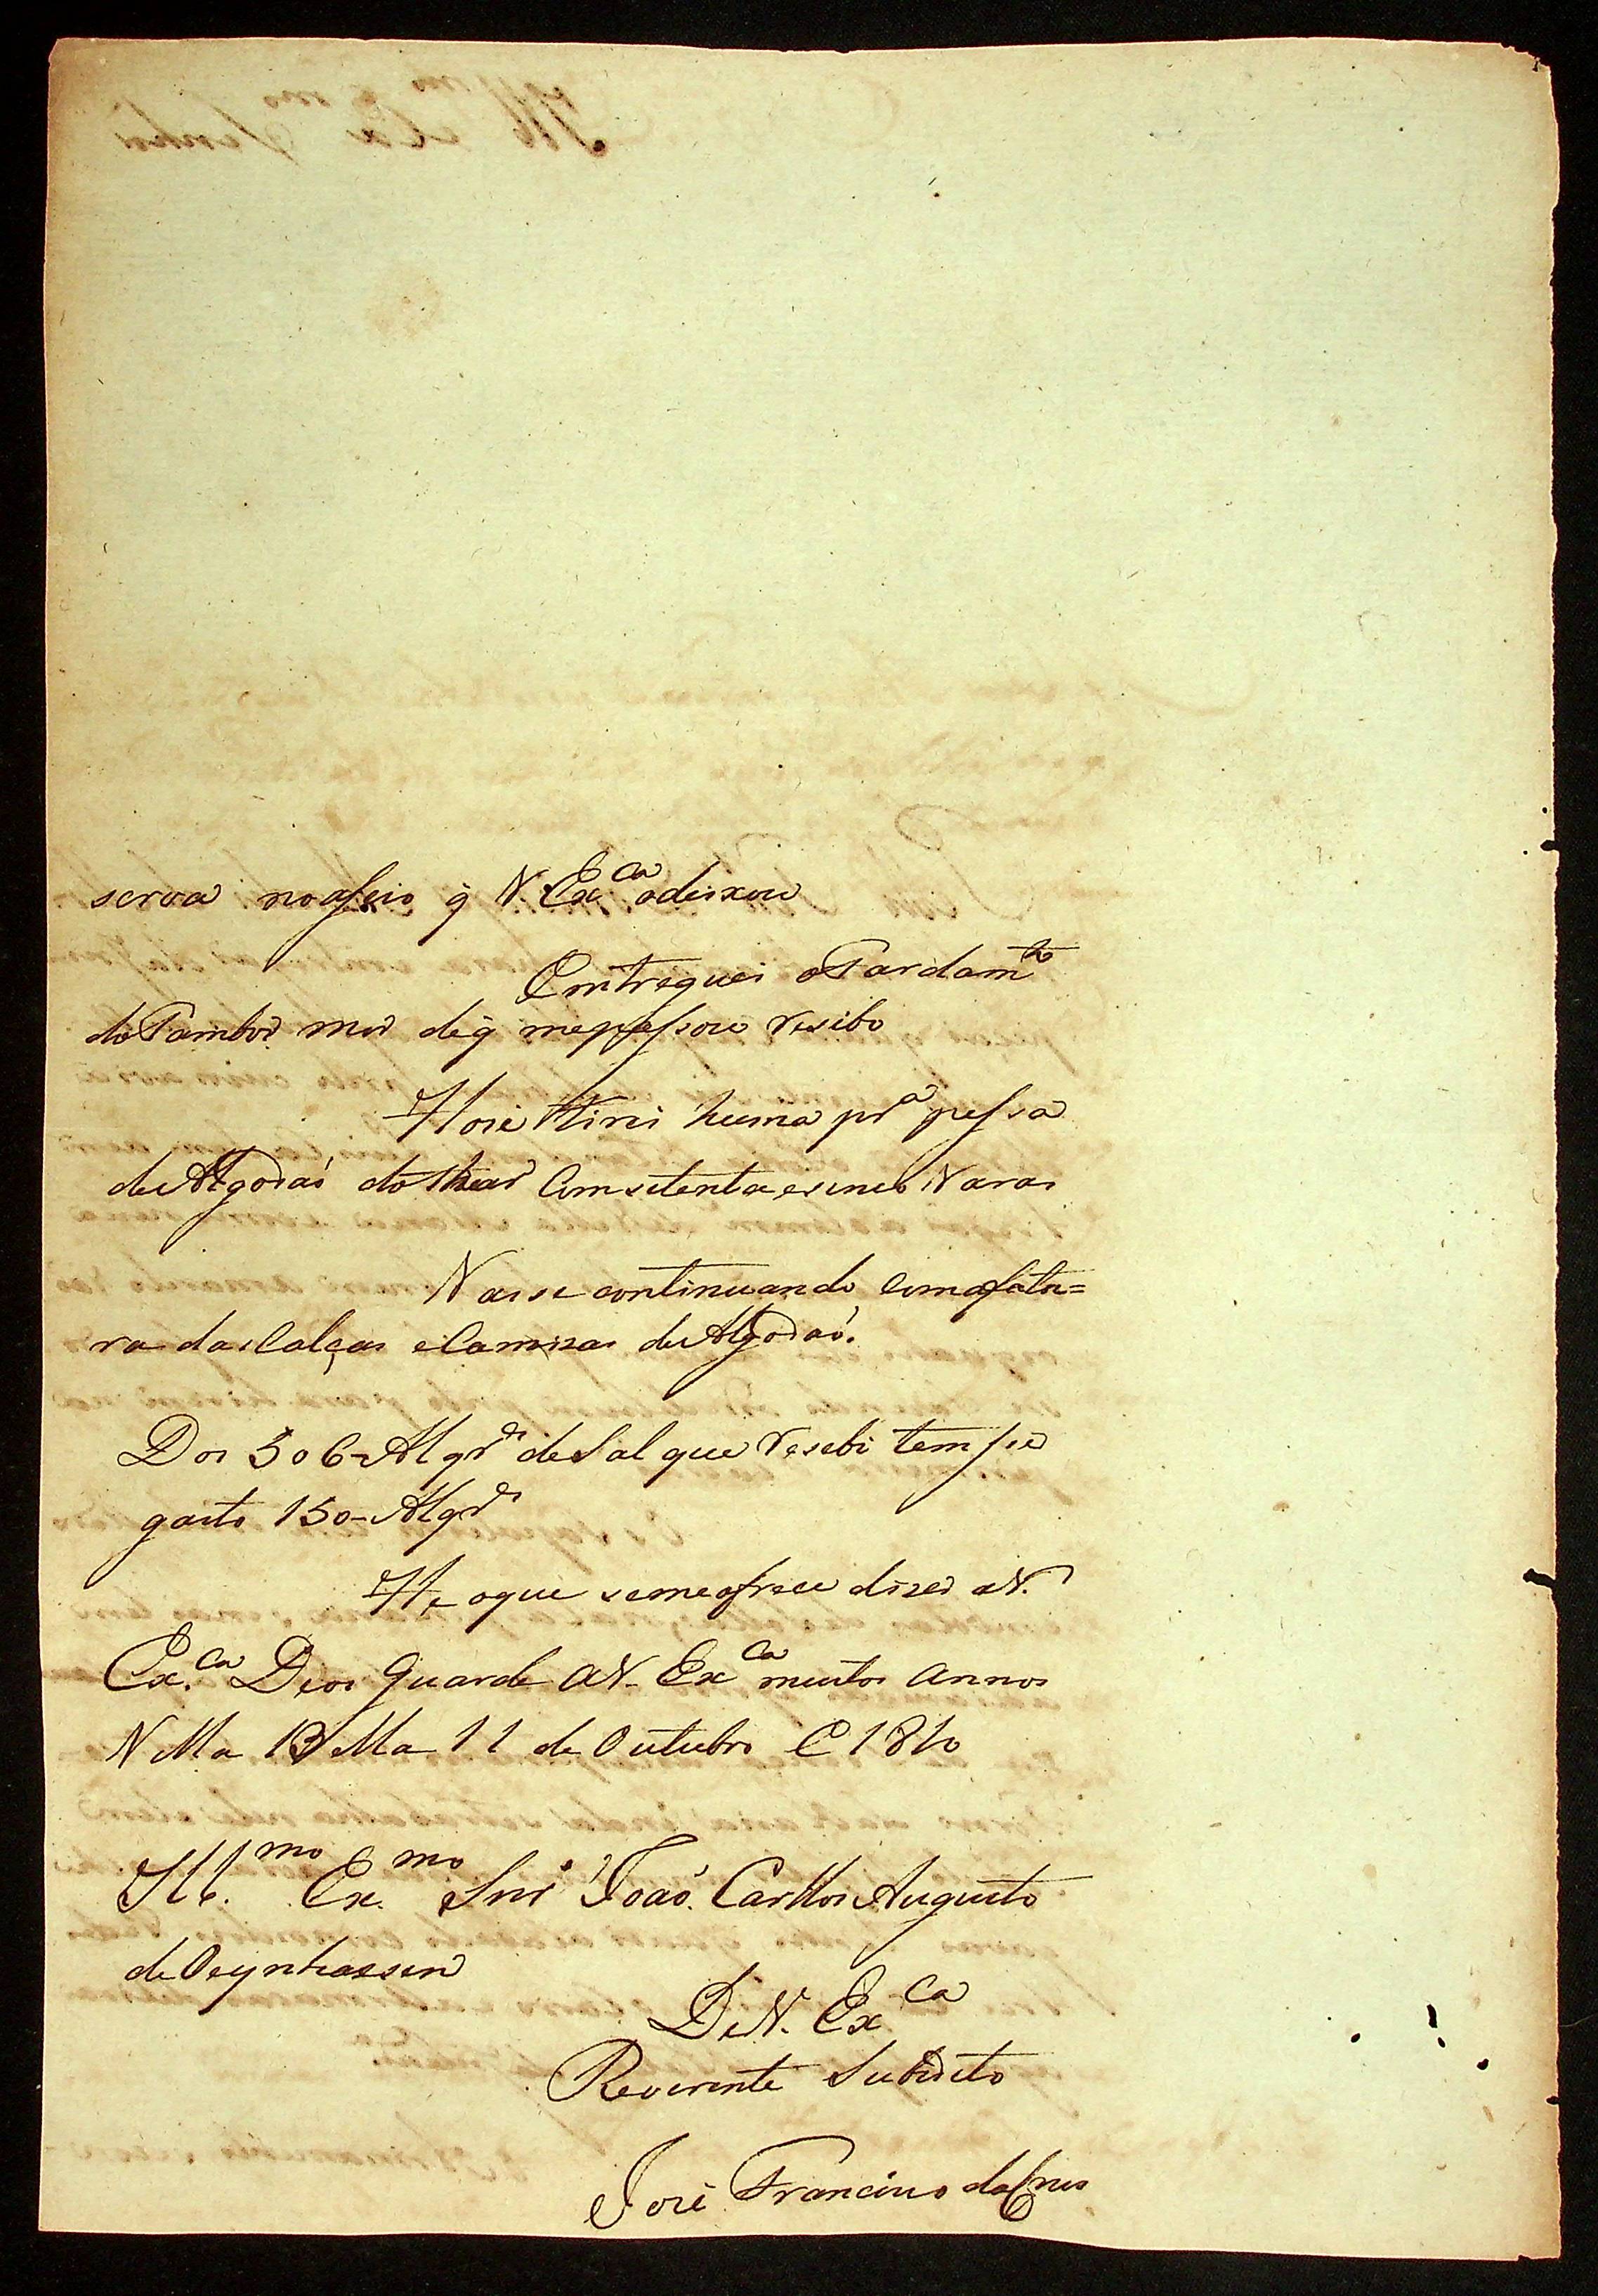 serva no asseio q̃ V. Ex.ca a deixou
Emtreguei o Fardam.to
do Tambor mor de q̃ me passou resibo
Hoie tirei huma pr.a pessa
de Algodaó do thear Com setenta e sinco Varas
Vaise continuando Com a fatu=
ra das Calças e Camizas de Algodaó.
Dos 506 Alqr.es de Sal que resebi tem se
gasto 150 Alqr.es
He o que se me ofrece dizer a V.
Ex.ca Deos Guarde a V. Ex.ca muitos annos
Va Ba 11 de Outubro E 1810
Ill.mo Ex.mo Snr Joaó Carllos Augusto
de Oeynhassen
De V. Ex.ca
Reverente Subdito
José Francisco da Crus